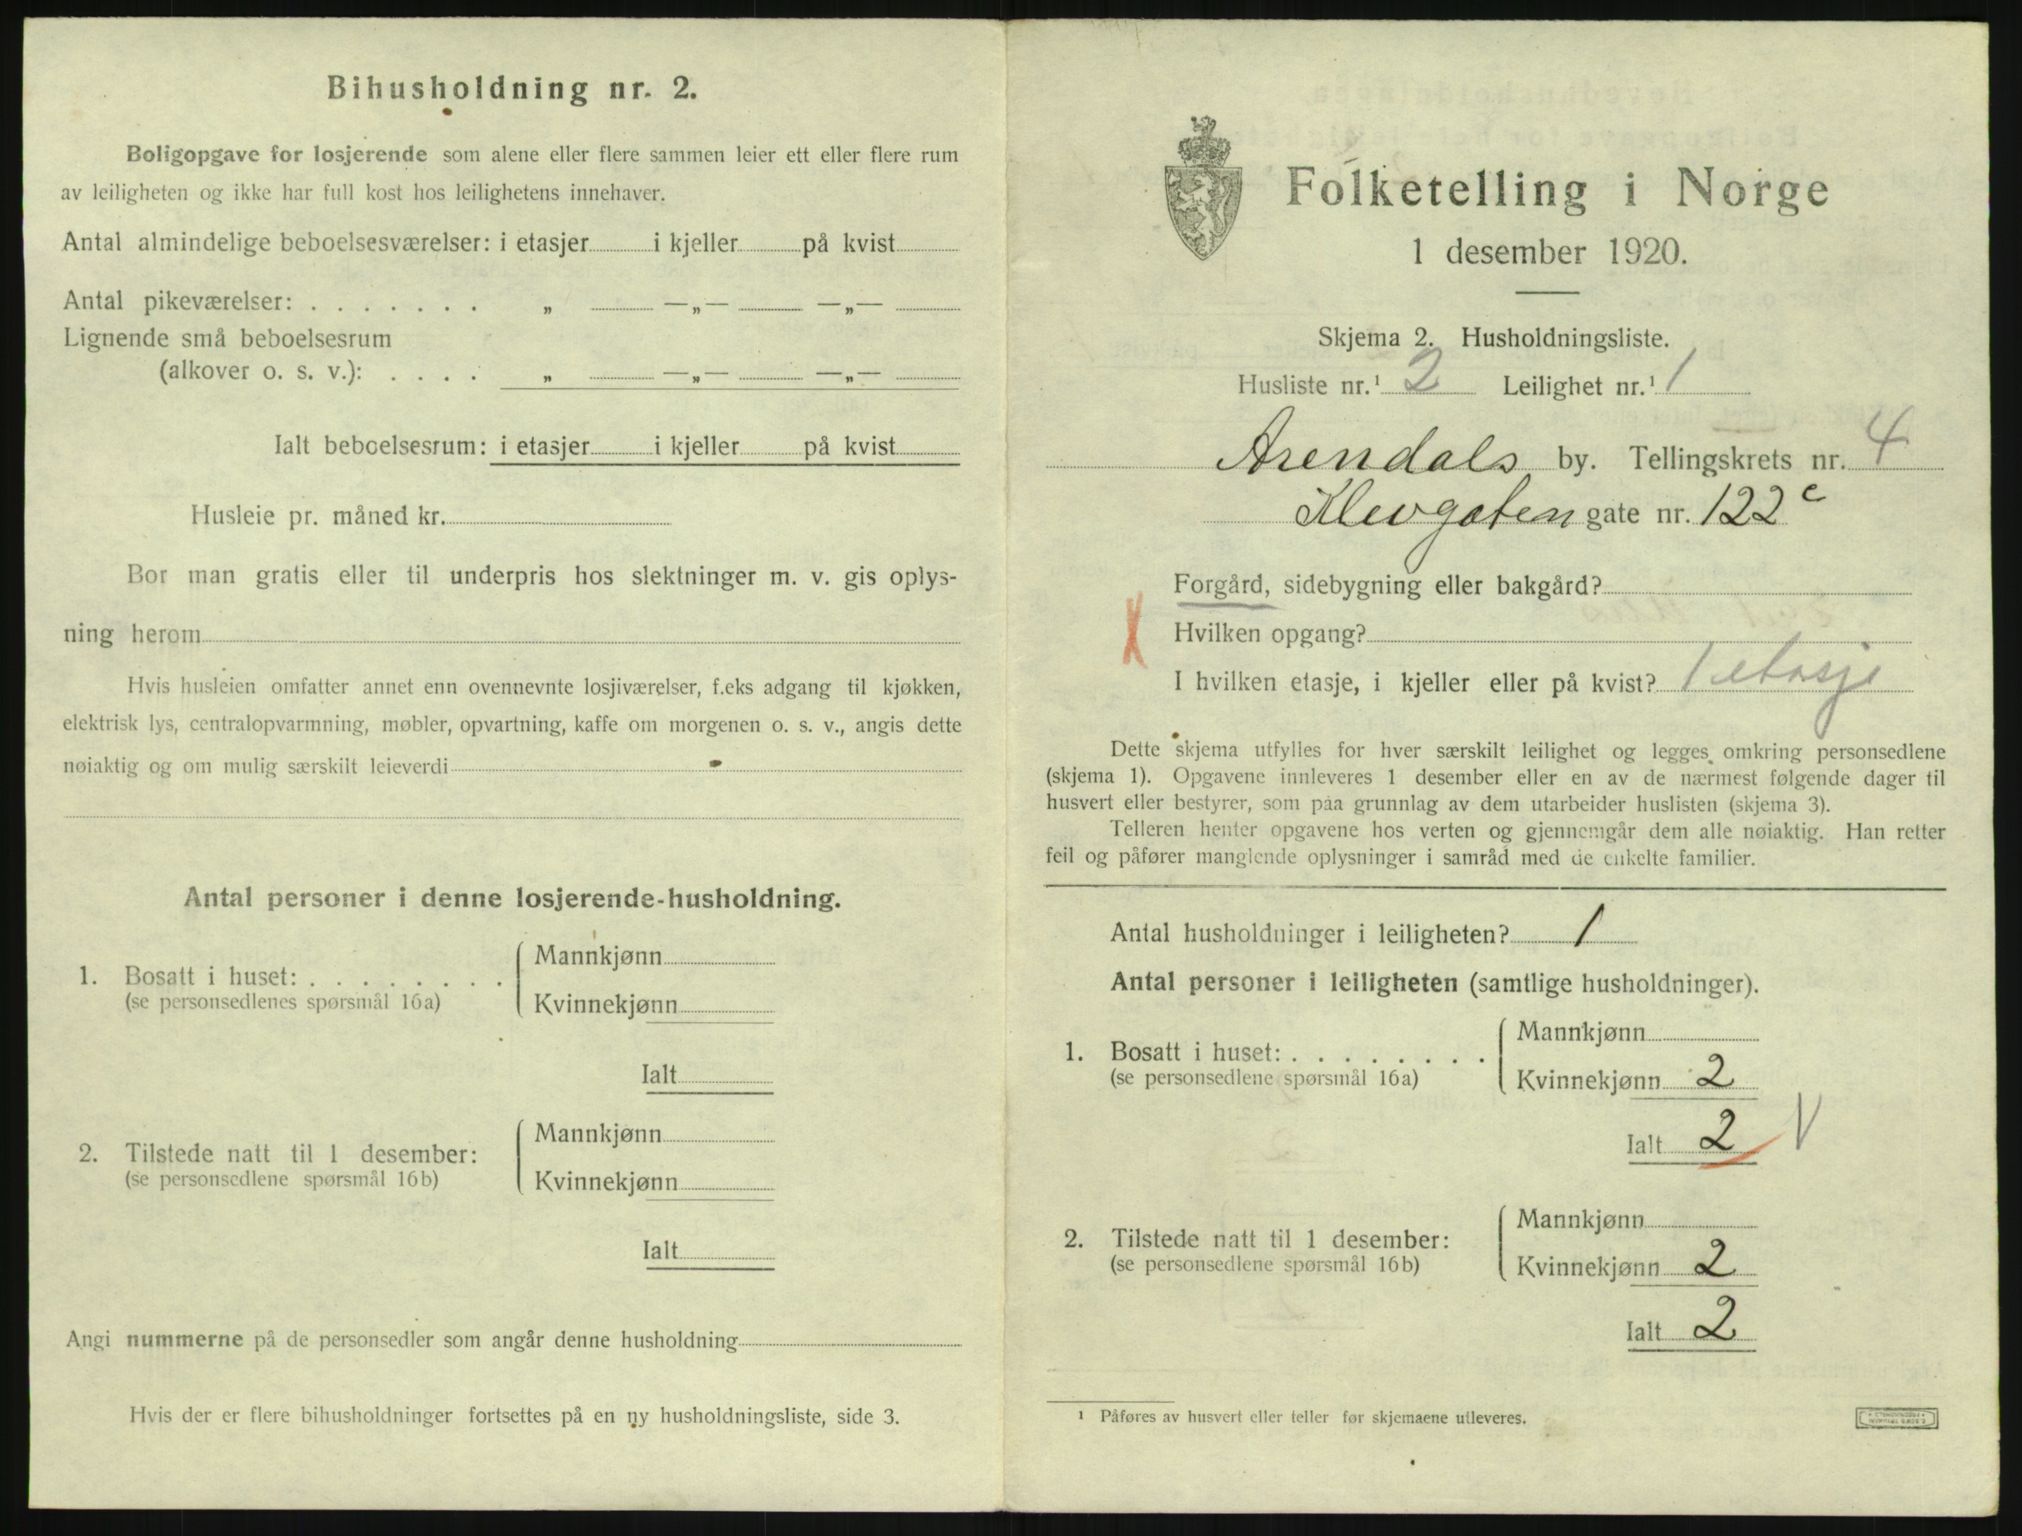 Bihusholdning nr. 2.
Boligopgave for losjerende som alene eller flere sammen leier ett eller flere rum
av leiligheten og ikke har full kost hos leilighetens innehaver.
Antal almindelige beboelsesværelser: i etasjer i kjeller på kvist
Antal pikeværelser: . . . . . . . „ —„— —„—
Lignende små beboelsesrum
(alkover o. s. v.): . . . . „ —„— —„—
Ialt beboelsesrum: i etasjer i kjeller på kvist
Husleie pr. måned kr.
Bor man gratis eller til underpris hos slektninger m. v. gis oplys-
ning herom
Hvis husleien omfatter annet enn ovennevnte losjiværelser, f.eks adgang til kjøkken,
elektrisk lys, centralopvarmning, møbler, opvartning, kaffe om morgenen o. s. v., angis dette
nøiaktig og om mulig særskilt leieverdi
Antal personer i denne losjerende-husholdning.
1. Bosatt i huset: . . . . . . . .
(se personsedlenes spørsmål 16a)
Mannkjønn
Kvinnekjønn
Ialt
2. Tilstede natt til 1 desember:
(se personsedlene spørsmål 16b)
Mannkjønn
Kvinnekjønn
Ialt
Angi nummerne på de personsedler som angår denne husholdning
Hvis der er flere bihusholdninger fortsettes på en ny husholdningsliste, side 3.
Folketelling i Norge
1 desember 1920.
Skjema 2. Husholdningsliste.
Husliste nr.¹ 2 Leilighet nr.¹ 1
Arendals by. Tellingskrets nr. 4
Klevgaten gate nr. 122c
Forgård, sidebygning eller bakgård?
Hvilken opgang?
I hvilken etasje, i kjeller eller på kvist? 1 etasje
Dette skjema utfylles for hver særskilt leilighet og legges omkring personsedlene
(skjema 1). Opgavene innleveres 1 desember eller en av de nærmest følgende dager til
husvert eller bestyrer, som paa grunnlag av dem utarbeider huslisten (skjema 3).
Telleren henter opgavene hos verten og gjennemgår dem alle nøiaktig. Han retter
feil og påfører manglende oplysninger i samråd med de enkelte familier.
Antal husholdninger i leiligheten? 1
Antal personer i leiligheten (samtlige husholdninger).
1. Bosatt i huset: . . . . . . . .
(se personsedlene spørsmål 16a)
Mannkjønn
Kvinnekjønn 2
Ialt 2
2. Tilstede natt til 1 desember:
(se personsedlene spørsmål 16b)
Mannkjønn
Kvinnekjønn 2
Ialt 2
¹ Påføres av husvert eller teller før skjemaene utleveres.